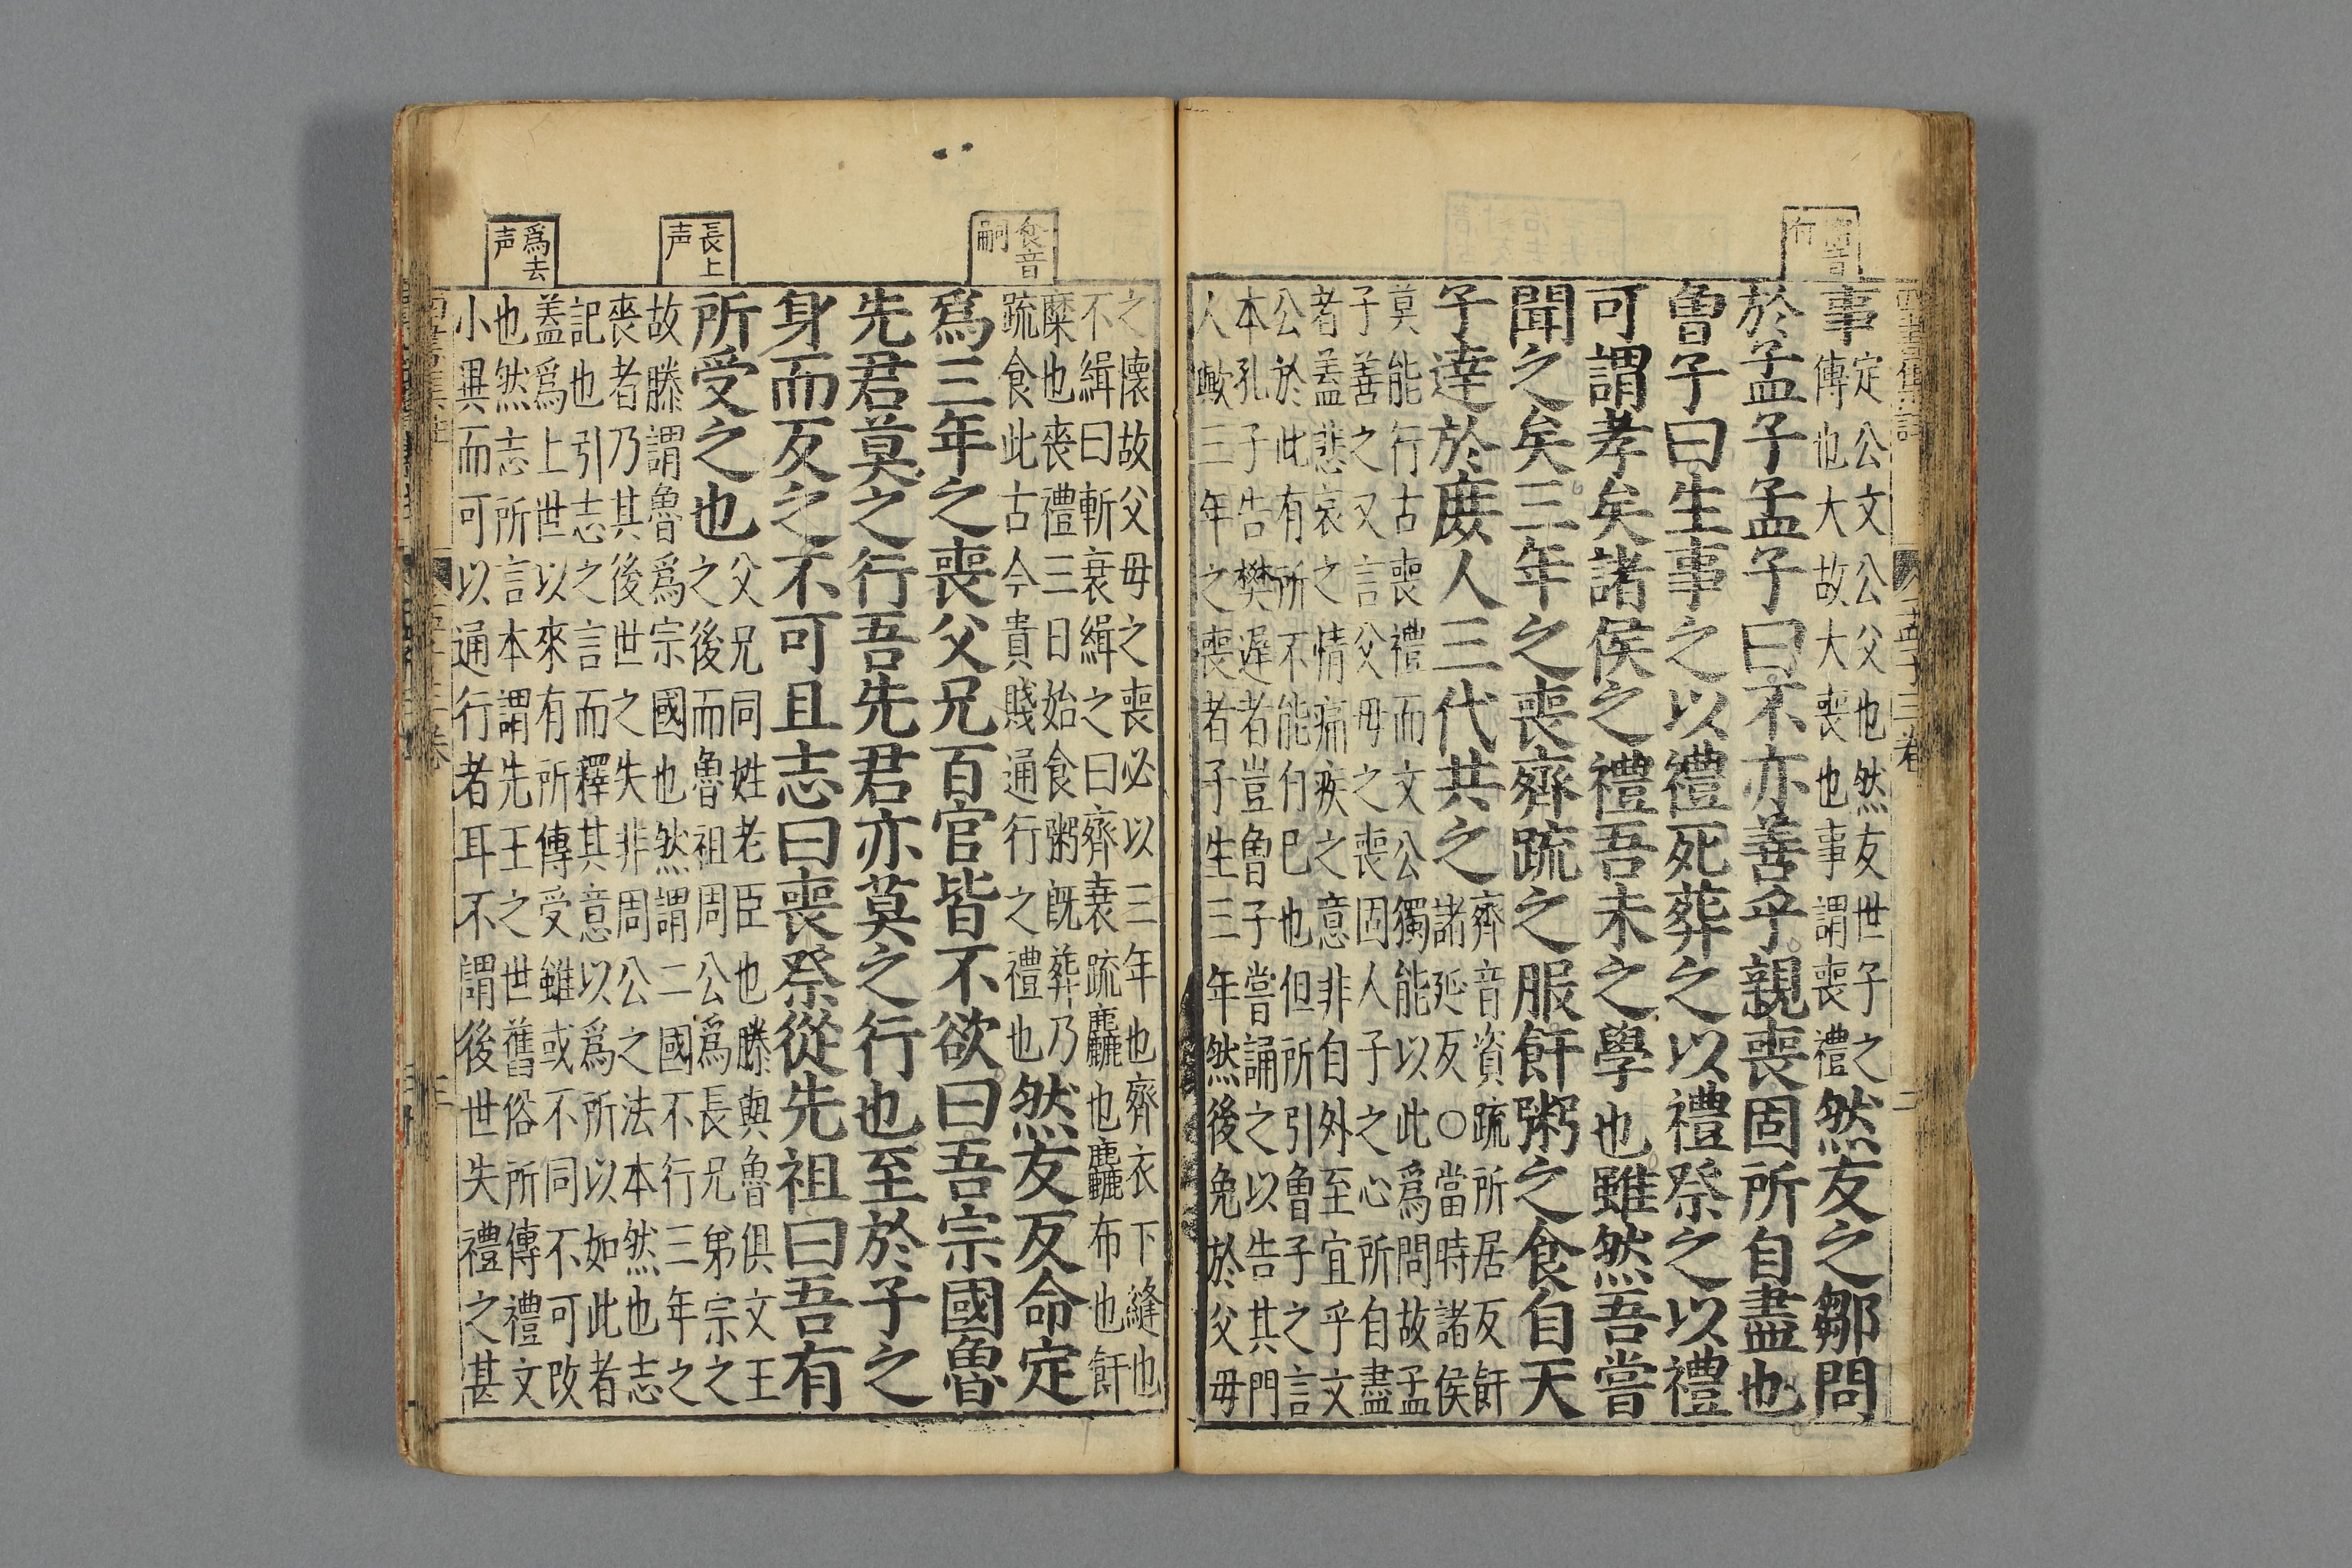 事
定公文公父也然友世子之
傅也大故大喪也事謂喪禮
然友之鄒問
於孟子孟子曰不亦善乎親喪固所自盡也
曾子曰生事之以禮死葬之以禮祭之以禮
可謂孝矣諸侯之禮吾未之學也雖然吾嘗
聞之矣三年之喪齊疏之服飦粥之食自天
子達於庶人三代共之
齊音資疏所居反飦
諸延反○當時諸侯
莫能行古喪禮而文公獨能以此爲問故孟
子善之又言父母之喪固人子之心所自盡
者蓋悲哀之情痛疾之意非自外至宜乎文
公於此有所不能自已也但所引曾子之言
本孔子告樊遲者豈曾子嘗誦之以告其門
人歟三年之喪者子生三年然後免於父母
食音
嗣
之懷故父母之喪必以三年也齊衣下縫也
不緝曰斬衰緝之曰齊衰疏麤也麤布也飦
糜也喪禮三日始食粥旣葬乃
疏食此古今貴賤通行之禮也
然友反命定
爲三年之喪父兄百官皆不欲曰吾宗國魯
先君莫之行吾先君亦莫之行也至於子之
身而反之不可且志曰喪祭從先祖曰吾有
所受之也
父兄同姓老臣也滕與魯俱文王
之後而魯祖周公爲長兄弟宗之
故滕謂魯爲宗國也然謂二國不行三年之
喪者乃其後世之失非周公之法本然也志
記也引志之言而釋其意以爲所以如此者
蓋爲上世以來有所傳受雖或不同不可改
也然志所言本謂先王之世舊俗所傳禮文
小異而可以通行者耳不謂後世失禮之甚
長上
声
爲去
声